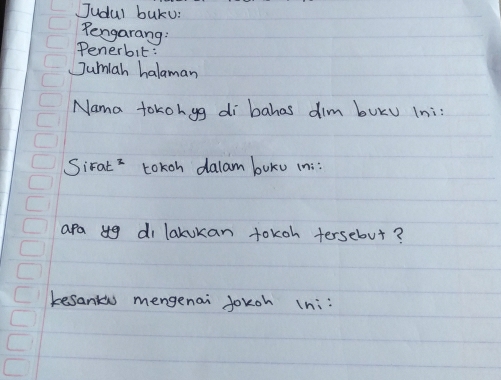 Judul buku:
Pengarang:
Penerbit:
Jumlah halaman
Nama tokoh yg di bahas dlm buku ini:
Sifat² tokoh dalam buku ini:
apa yg di lakukan tokoh tersebut?
kesanku mengenai tokoh ini: